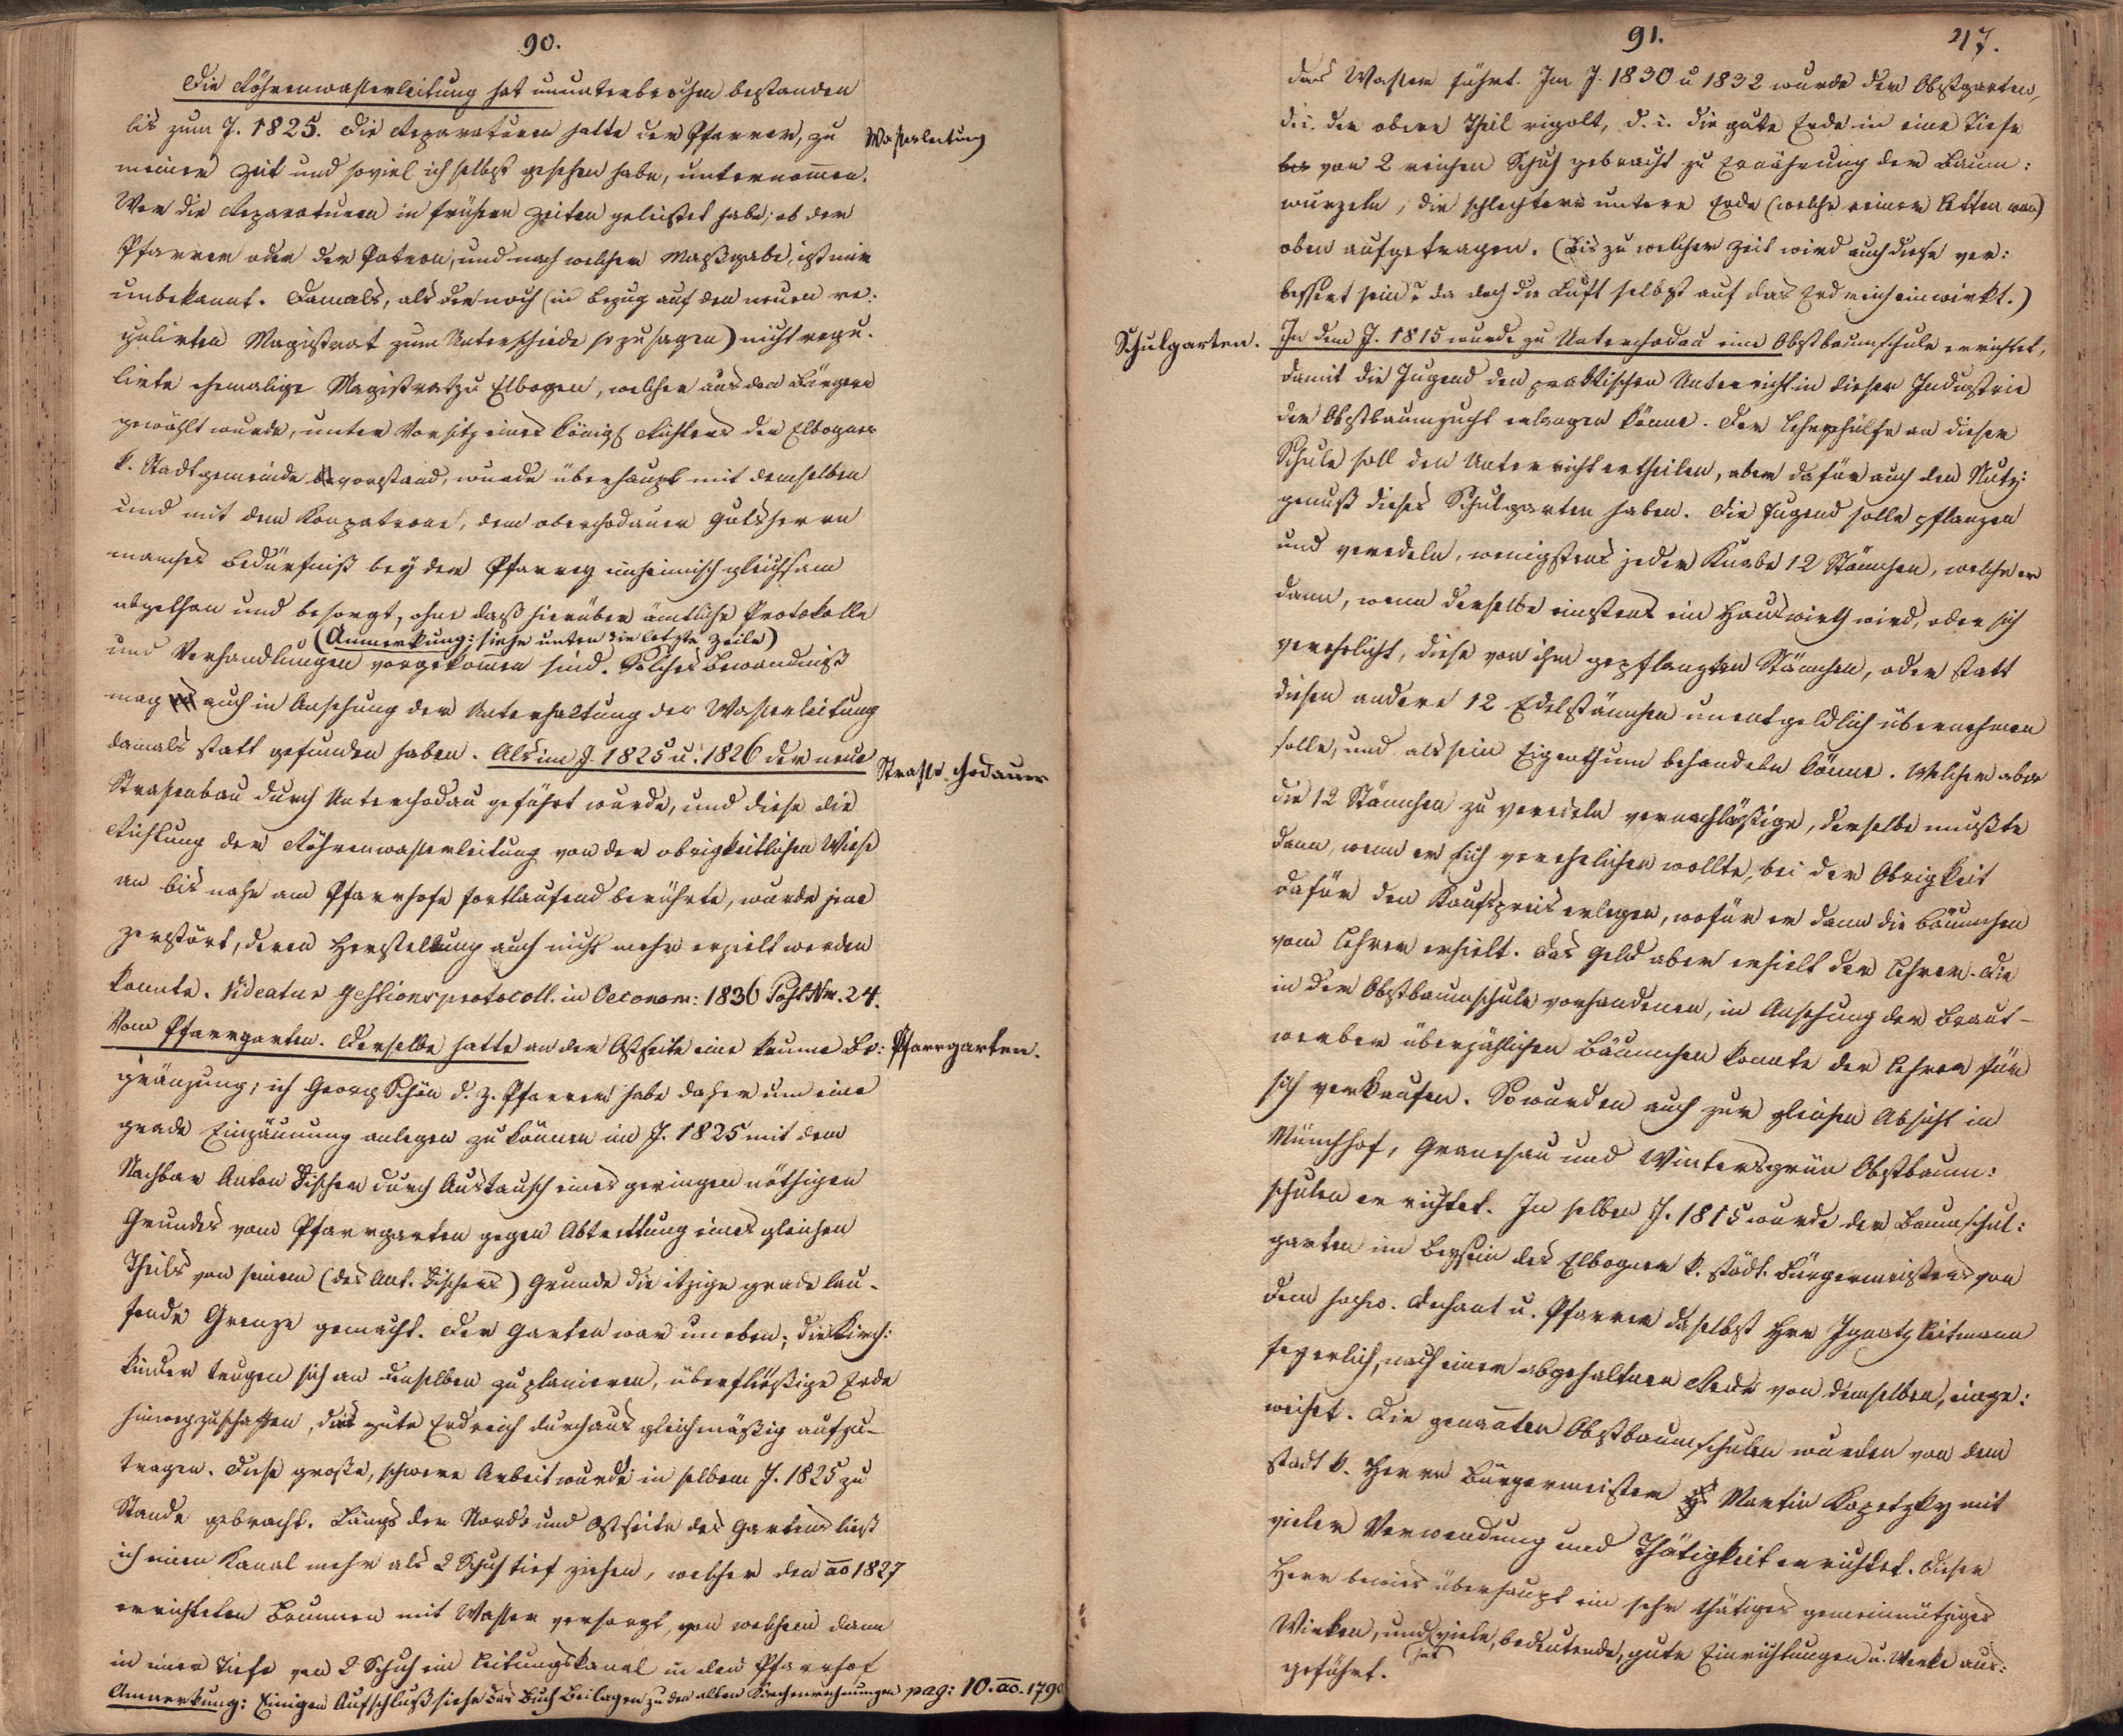 90.
Die Röhrenwasserleitung hat ununterbrochen bestanden
bis zum J. 1825. Die Reparaturen hatte der Pfarrer, zu
Wasserleitung
meiner Zeit und soviel ich selbst gesehen habe, unternommen.
Wer die Reparaturen in frühern Zeiten geleistet habe; ob der
Pfarrer oder der Patron, und nach welcher Maßgabe, ist mir
unbekannt. Damals, als der noch (in Bezug auf den neuen re:
gulirten Magistrat zum Unterschiede so zu sagen) nicht regu-
lirte ehemalige Magistrat zu Elbogen, welcher aus den Bürgern
gewählt wurde, unter Vorsitz eines königl. Richters der Elbogner
k. Stadtgemeinde vorstand, wurde überhaupt mit demselben
und mit dem Konpatrone, dem oberchodauer Gutsherrn
manches Bedürfniß bey der Pfarrey einheimisch gleichsam
abgethan und besorgt, ohne daß hierüber ämtliche Protokolle
(Anmerkung: siehe unten die letzte Zeile)
und Verhandlungen vorgekommen sind. Solches Bewandtniß
mag auch in Ansehung der Unterhaltung der Wasserleitung
damals statt gefunden haben. Als im J. 1825 u. 1826 der neue
Strasse chodauer
Straßenbau durch Unterchodau geführt wurde, und diese die
Richtung der Röhrenwasserleitung von der obrigkeitlichen Wiese
an bis nahe am Pfarrhofe fortlaufend berührte, wurde jene
zerstört, deren Herstellung auch nicht mehr erzielt werden
konnte. Videatur Gestionsprotocoll. in Oeconom: 1836 Post Nr. 24.
Vom Pfarrgarten. Derselbe hatte an der Ostseite eine krumme Be:
Pfarrgarten.
gränzung; ich Georg Schön d. z. Pfarrer habe daher um eine
grade Einzäunung anlegen zu können im J. 1825 mit dem
Nachbar Anton Fischer durch Austausch eines geringen nöthigen
Grundes vom Pfarrgarten gegen Abtrettung eines gleichen
Theils von seinem (des Ant. Fischers) Grunde die itzige grade lau-
fende Grenze gemacht. Der Garten war uneben; die Kirch:
kinder trugen sich an denselben zu planieren, überflüßige Erde
hinwegzuschaffen, das gute Erdreich durchaus gleichmäßig aufzu-
tragen. Diese große, schwere Arbeit wurde in selbem J. 1825 zu
Stande gebracht. Längs der Nord- und Ostseite des Gartens ließ
ich einen Kanal mehr als 2 Schuh tief ziehen, welcher den ao 1827
errichteten Brunnen mit Wasser versorgt, von welchem dann
in einer Tiefe von 2 Schuh ein Leitungskanal in den Pfarrhof
Anmerkung: Einigen Aufschluß siehe das Buch Beilagen zu den alten Kirchenrechnungen pag: 10. ao. 1790
91.
47.
das Wasser führt. Im J. 1830 u 1832 wurde der Obstgarten,
d. i. der obere Theil rigolt, d. i. die gute Erde in eine Tiefe
bis von 2 reichen Schuh gebracht zu Ernährung der Baum:
wurzeln, die schlechtere untere Erde (welche reiner Letten war)
oben aufgetragen. (Bis zu welcher Zeit wird auch diese ver:
bessert sein? da doch die Luft selbst auf das Erdreich einwirkt.)
Schulgarten.
In dem J. 1815 wurde zu Unterchodau eine Obstbaumschule errichtet,
damit die Jugend den praktischen Unterricht in dieser Industrie
der Obstbaumzucht erlangen könne. Der Lehrgehülfe an dieser
Schule soll den Unterricht ertheilen, aber dafür auch den Nutz:
genuß dieses Schulgarten haben. Die Jugend solle pflanzen
und veredeln, wenigstens jeder Knabe 12 Stämchen, welche er
dann, wenn derselbe einstens ein Hauswirth wird, oder sich
verehelicht, diese von ihm gepflanzten Stämchen, oder statt
diesen andere 12 Edelstämchen unentgeldlich übernehmen
solle, und als sein Eigenthum behandeln könne. Welcher aber
die 12 Stämchen zu veredeln vernachläßige, derselbe mußte
dann, wenn er sich verehelichen wollte, bei der Obrigkeit
dafür den Kaufpreis erlegen, wofür er dann die Bäumchen
vom Lehrer erhielt. Das Geld aber erhielt der Lehrer. Die
in der Obstbaumschule vorhandenen, in Ansehung der Braut-
werber überzähligen Bäumchen konnte der Lehrer für
sich verkaufen. So wurden auch zur gleichen Absicht in
Münchhof, Granesau und Wintersgrün Obstbaum:
schulen errichtet. In selben J. 1815 wurde der Baumschul:
garten im Beysein des Elbogner k. städt. Bürgermeisters von
dem hochw. Dechant u. Pfarrer daselbst Hrn Ignatz Leitmann
feyerlich, nach einer abgehaltnen Rede von demselben, einge:
weihet. Die genannten Obstbaumschulen wurden von dem
stadt k. Herrn Bürgermeister Martin Kopetzky mit
vieler Verwendung und Thätigkeit errichtet. Dieser
Herr bewies überhaupt ein sehr thätiges gemeinnütziges
Wirken, und hat viele, bedeutende, gute Einrichtungen u. Werke aus:
geführt.